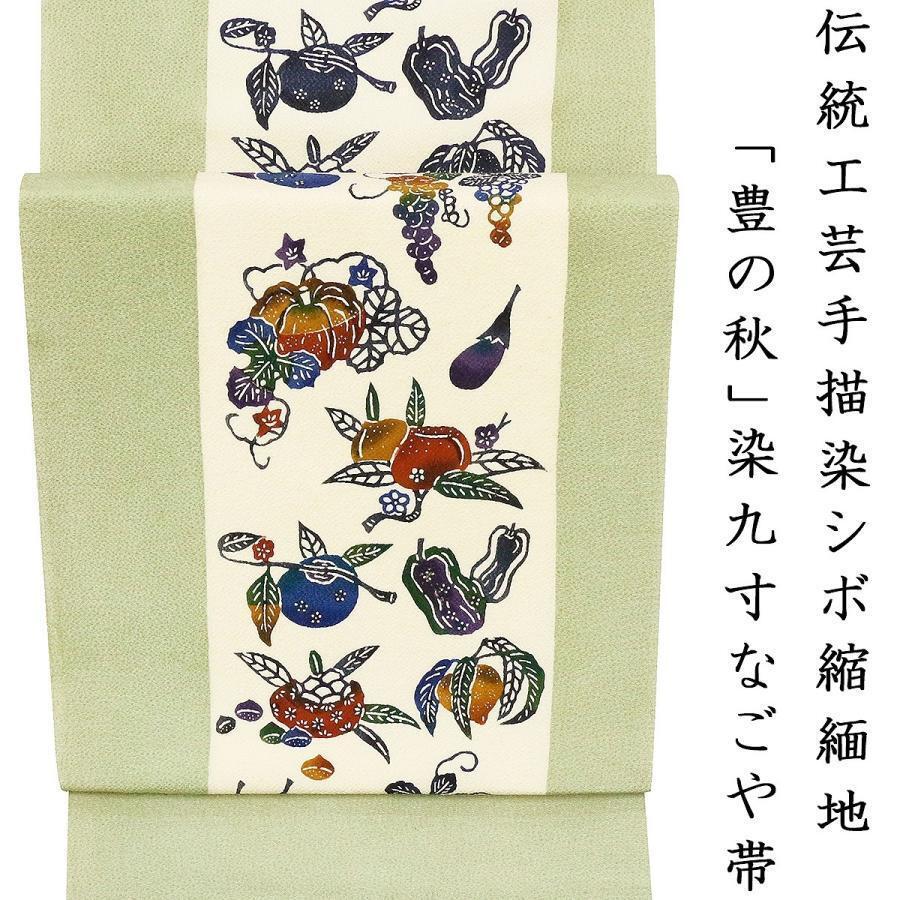 伝統工芸手描染シボ縮緬地
「豊の秋」染九寸なごや帯